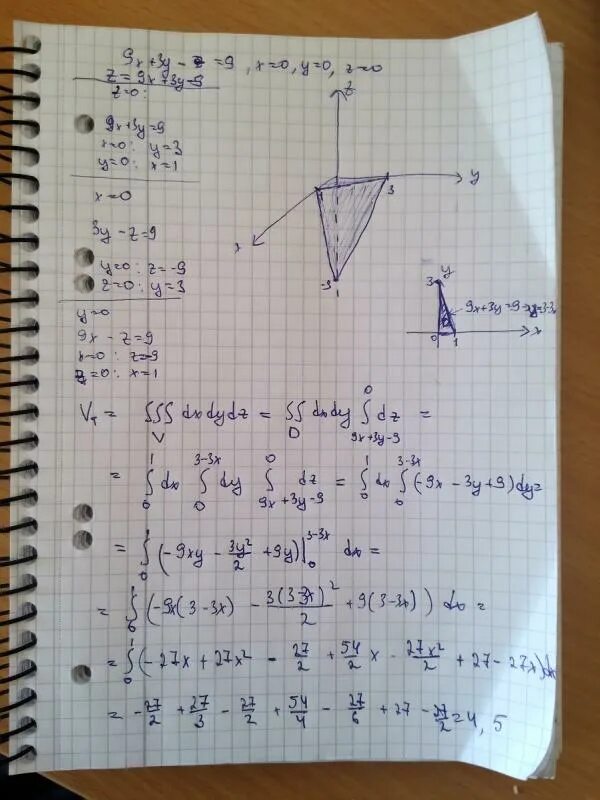 9x+3y-z=9, x=0, y=0, z=0
z=9x+3y-9
z=0:
9x+3y=9
x=0: y=3
y=0: x=1
x=0
3y-z=9
y=0: z=-9
z=0: y=3
y=0
9x-z=9
x=0: z=-9
z=0: x=1
z
y
3
1
x
-9
y
3
9x+3y=9→y=3-3x
0 1
x
V_T = ∭_V dxdydz = ∬_D dxdy ∫_{9x+3y-9}^{0} dz =
= ∫_0^1 dx ∫_0^{3-3x} dy ∫_{9x+3y-9}^{0} dz = ∫_0^1 dx ∫_0^{3-3x} (-9x-3y+9)dy=
= ∫_0^1 (-9xy - 3y²/2 + 9y)|_0^{3-3x} dx =
= ∫_0^1 (-9x(3-3x) - 3(3-3x)²/2 + 9(3-3x)) dx =
= ∫_0^1 (-27x + 27x² - 27/2 + 54/2 x - 27x²/2 + 27 - 27x)dx
= -27/2 + 27/3 - 27/2 + 54/4 - 27/6 + 27 - 27/2 = 4,5